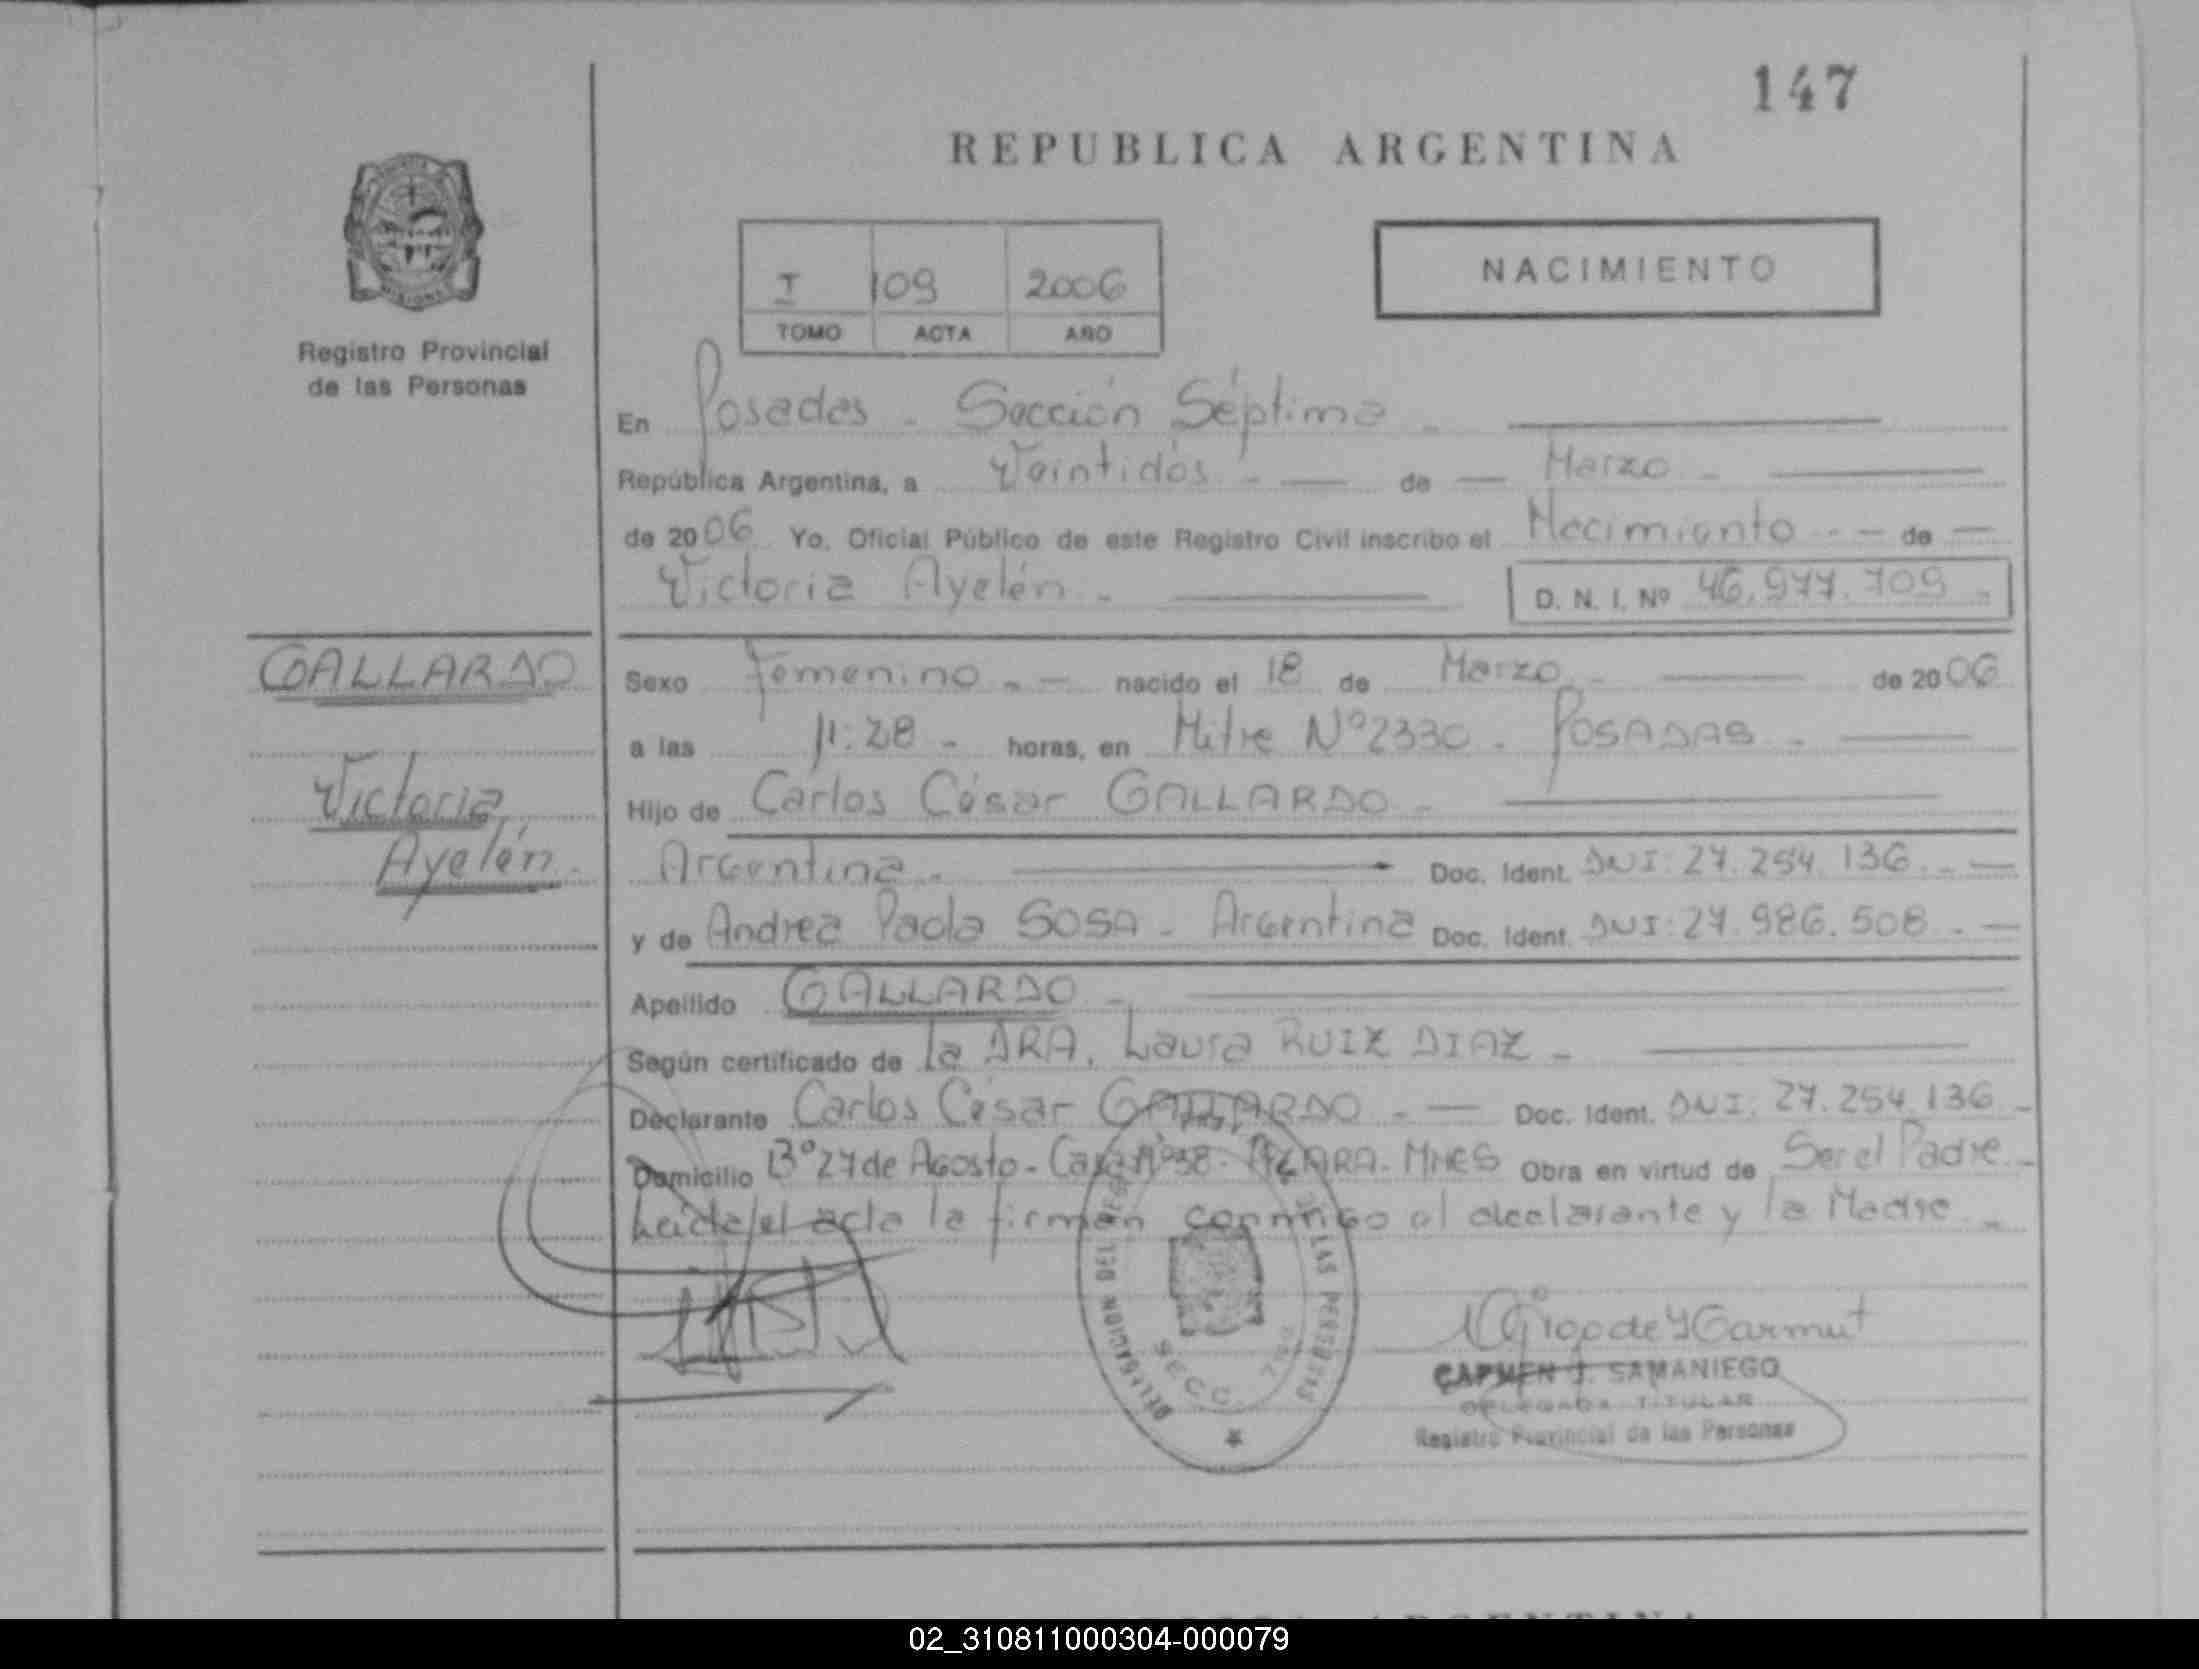 147
REPUBLICA ARGENTINA
MISIONES
Registro Provincial
de las Personas
I 109 2006
TOMO ACTA AÑO
NACIMIENTO
En Posadas - Sección Séptima -
República Argentina, a Veintidós - de Marzo -
de 2006 Yo, Oficial Público de este Registro Civil inscribo el Nacimiento - - de
Victoria Ayelén - D. N. I. Nº 46.977.709 -
GALLARDO
Victoria
Ayelén -
Sexo Femenino - nacido el 18 de Marzo - de 2006
a las 11:28 - horas, en Mitre Nº 2330 - POSADAS -
Hijo de Carlos César GALLARDO -
Argentina - Doc. Ident. DNI: 27.254.136 -
y de Andrea Paola SOSA - Argentina Doc. Ident. DNI: 27.986.508 -
Apellido GALLARDO -
Según certificado de la DRA. Laura RUIZ DIAZ -
Declarante Carlos César GALLARDO - Doc. Ident. DNI: 27.254.136 -
Domicilio Bº 27 de Agosto - Casa Nº 38 - Mnes Obra en virtud de Ser el Padre -
Leída el acta la firman conmigo el declarante y la Madre -
DELEGACION DEL DE LAS PERSONAS
SECC. 7ma
CARMEN J. SAMANIEGO
DELEGADA TITULAR
Registro Provincial de las Personas
REPUBLICA ARGENTINA
02_310811000304-000079